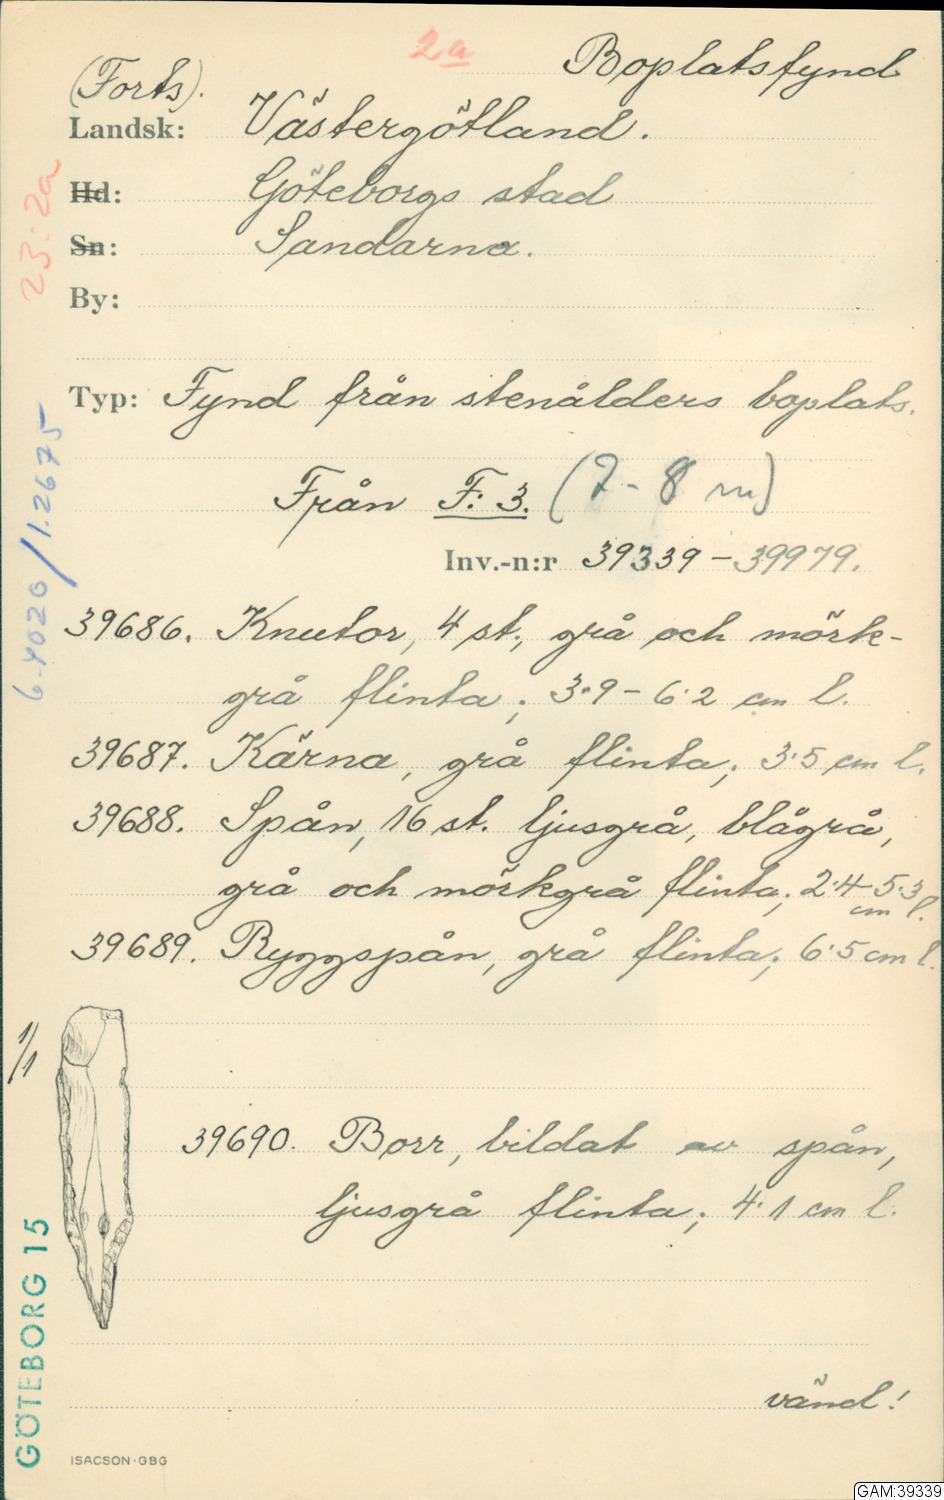 2a
Boplatsfynd
(Forts).
Landsk: Västergötland.
Hd: Göteborgs stad
Sn: Sandarna.
By:
23:2a
Typ: Fynd från stenålders boplats.
Från F: 3. (7-8 m)
Inv.-n:r 39339-39979.
6-4020/1.2675
39686. Knutor, 4 st., grå och mörk-
grå flinta; 3·9-6·2 cm l.
39687. Kärna, grå flinta; 3·5 cm l.
39688. Spån, 16 st. ljusgrå, blågrå,
grå och mörkgrå flinta; 2·4-5·3
cm l.
39689. Ryggspån, grå flinta; 6·5 cm l.
1/1
39690. Borr, bildat av spån,
ljusgrå flinta; 4·1 cm l.
GÖTEBORG 15
vänd!
ISACSON·GBG
GAM:39339